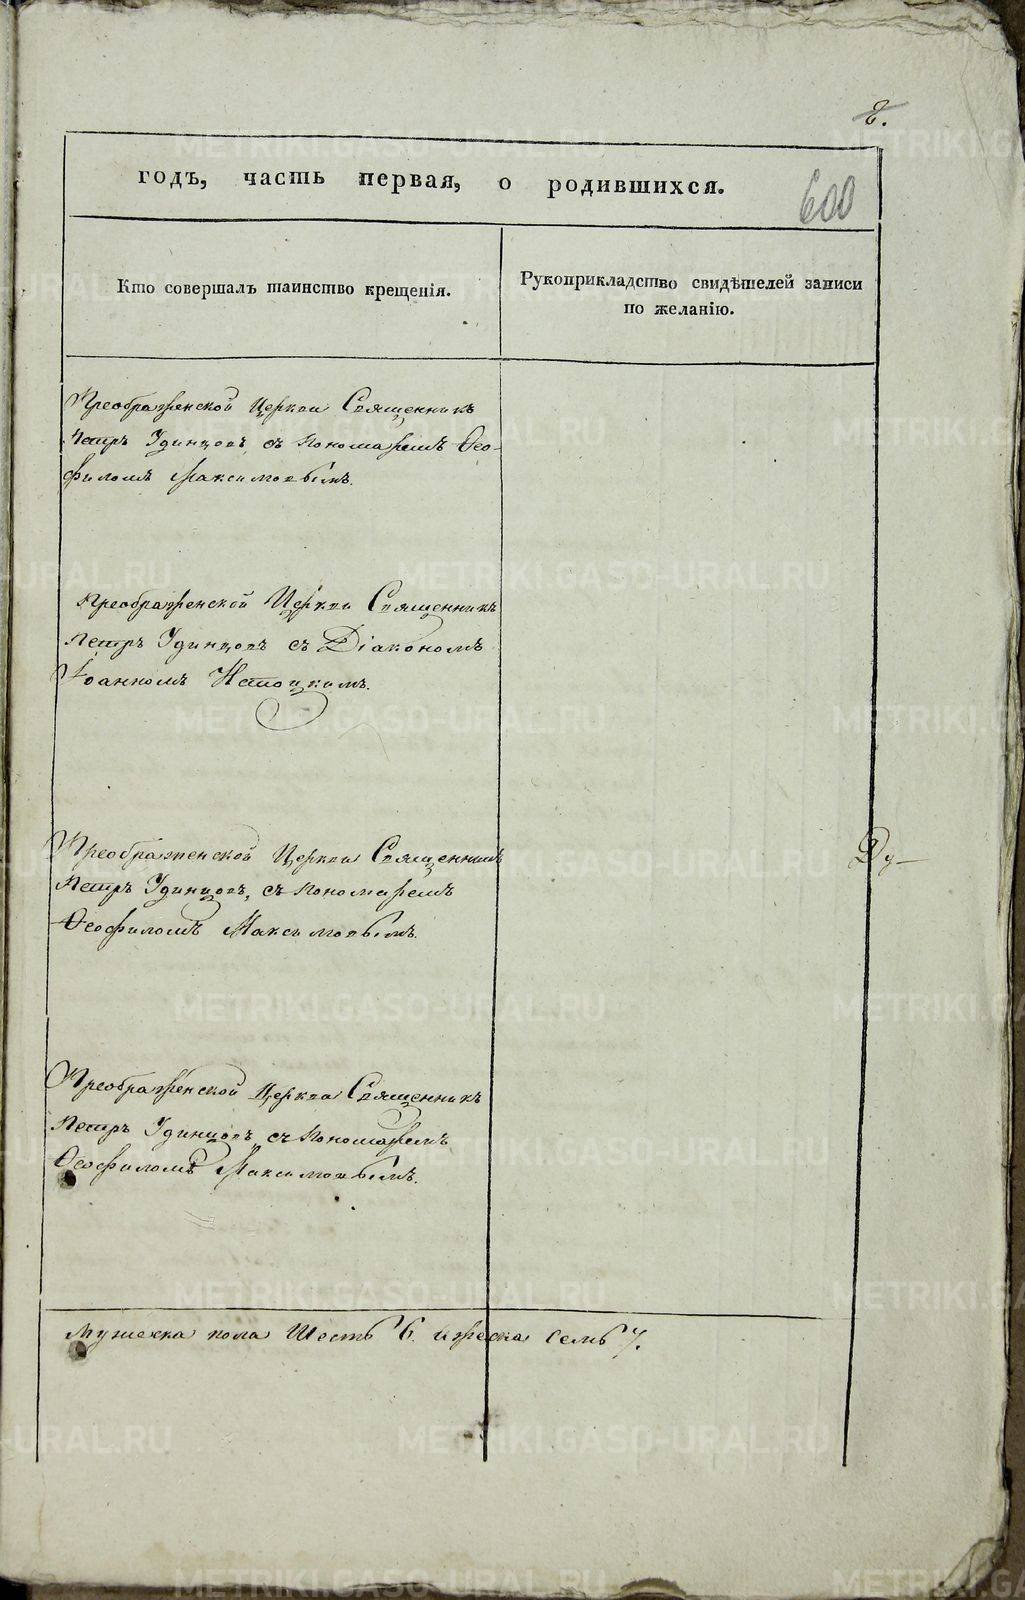 8.
годъ, часть первая, о родившихся.
600
Кто совершалъ таинство крещенія.
Рукоприкладство свидѣтелей записи
по желанію.
Преображенской Церкви Священникъ
Петръ Удинцовъ, съ пономаремъ Ѳео-
филомъ Максимовымъ.
Преображенской Церкви Священникъ
Петръ Удинцовъ съ Діакономъ
Іоанномъ
Преображенской Церкви Священникъ
Петръ Удинцовъ, съ пономаремъ
Ѳеофиломъ Максимовымъ.
Ду-
Преображенской Церкви Священникъ
Петръ Удинцовъ съ Пономаремъ
Ѳеофиломъ Максимовымъ.
Мужеска пола Шесть 6. и женска Семь 7.
METRIKI.GASO-URAL.RU